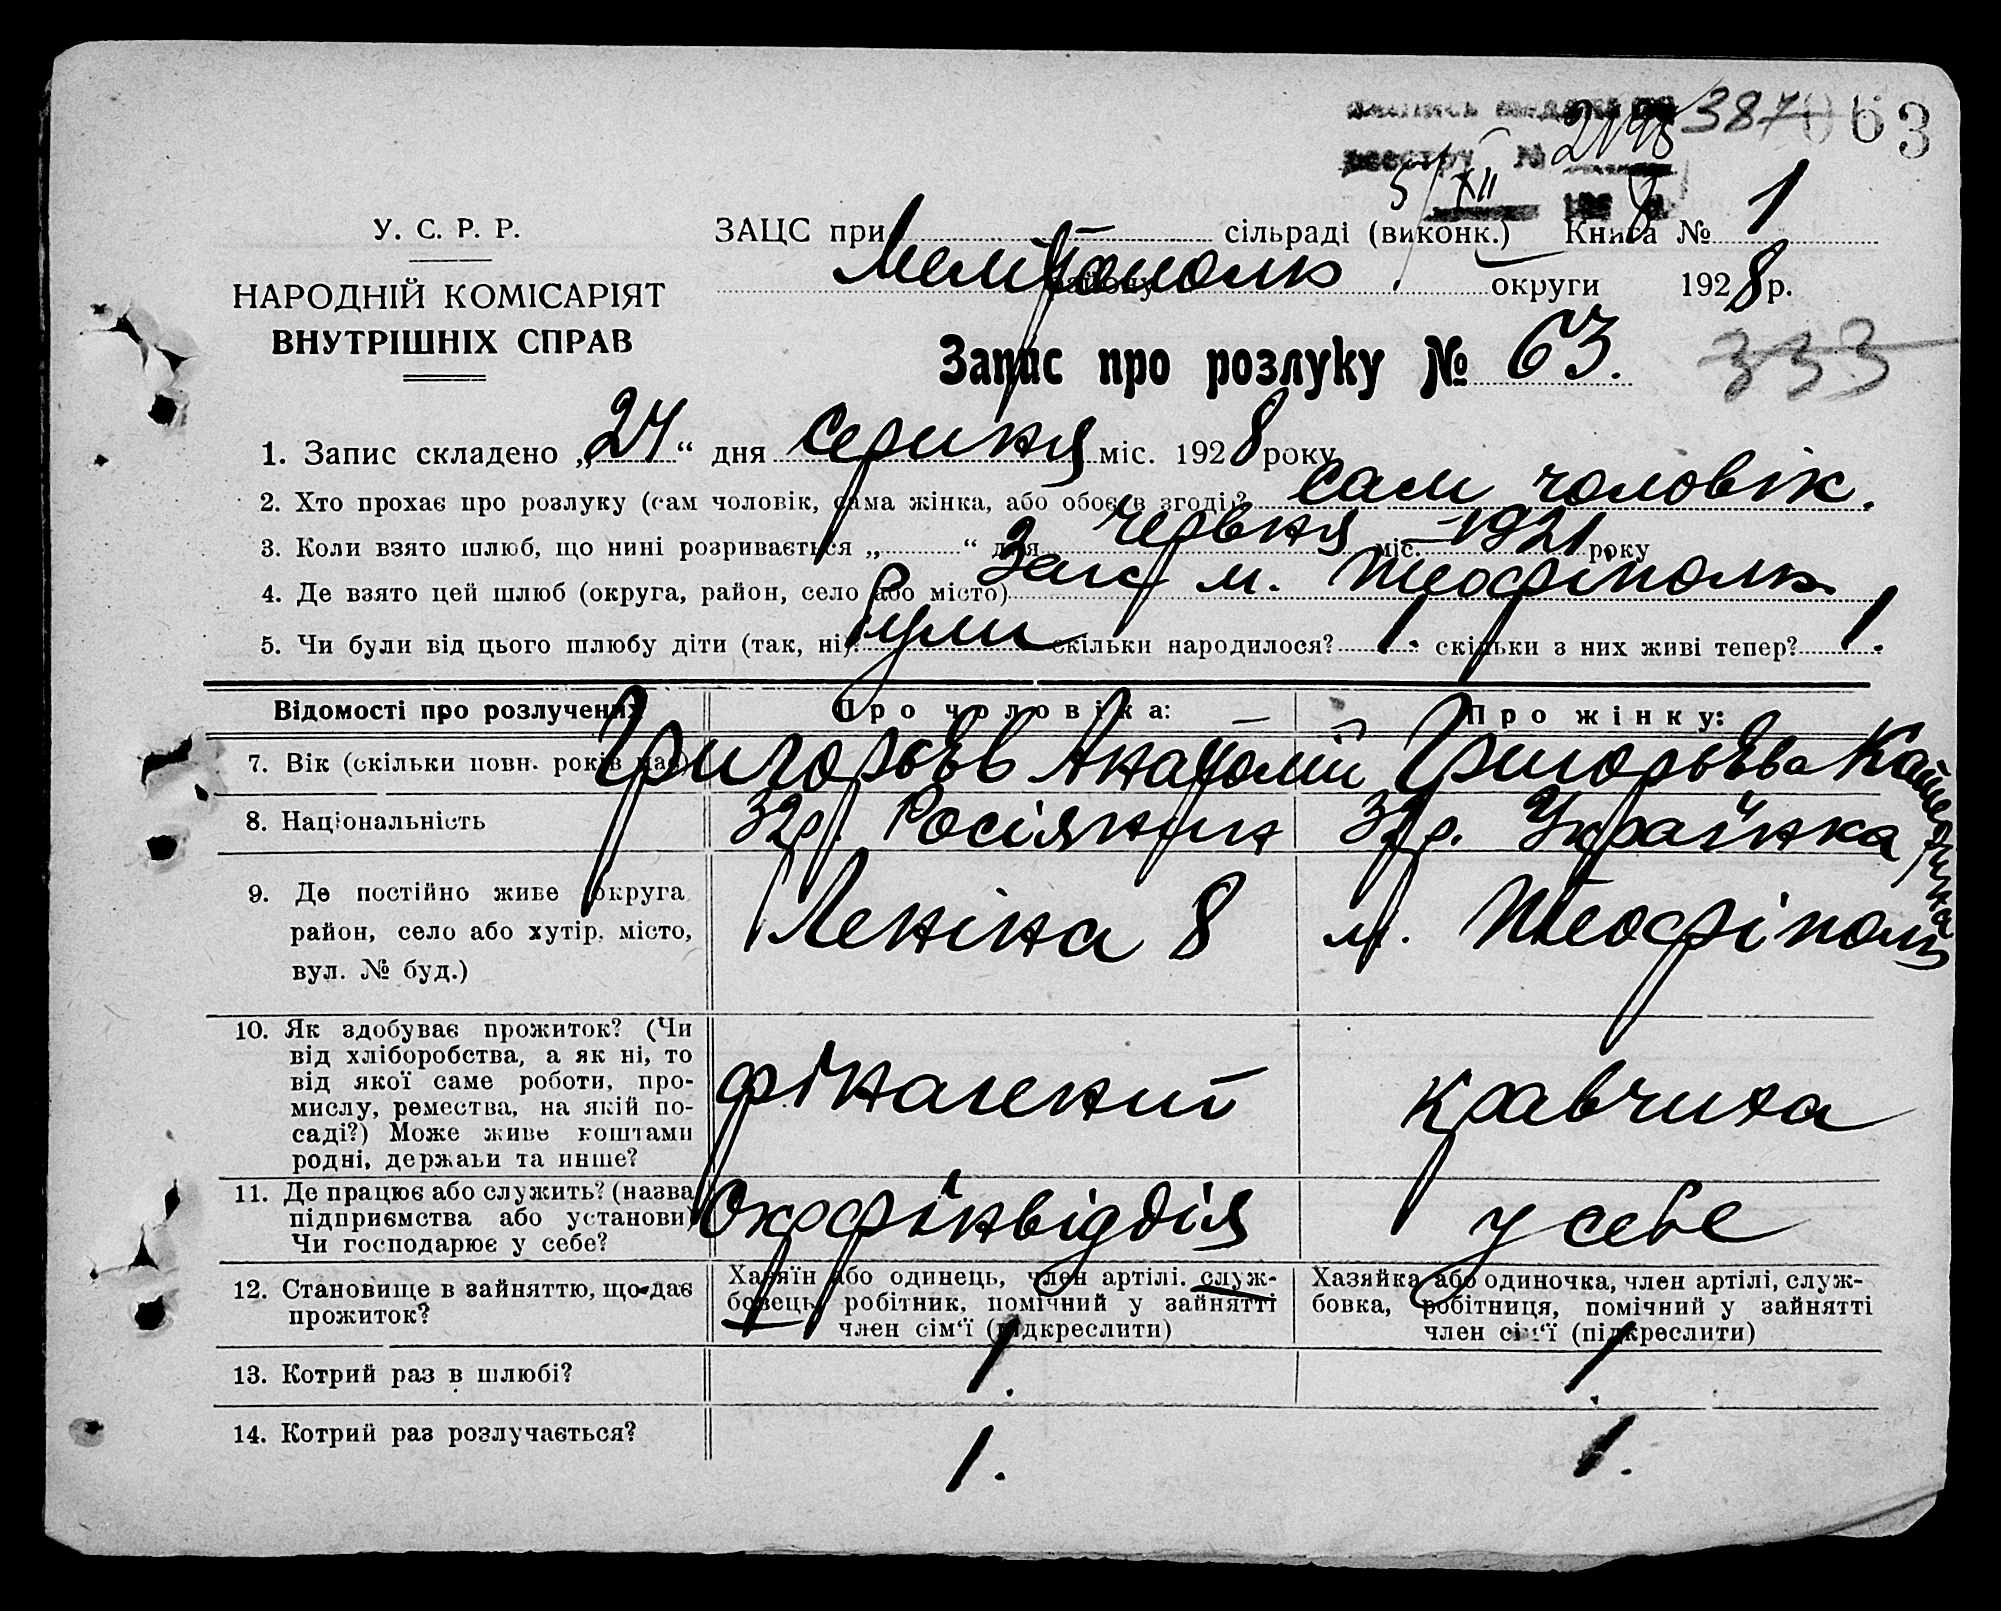 387
063
реєстру № 2198
5/XII
У. С. Р. Р.
НАРОДНІЙ КОМІСАРІЯТ
ВНУТРІШНІХ СПРАВ
ЗАЦС при сільраді (виконк.) Книга № 1
Мелітополь району округи 1928 р.
Запис про розлуку № 63.
333
1. Запис складено „24“ дня серпня міс. 1928 року
2. Хто прохає про розлуку (сам чоловік, сама жінка, або обоє в згоді)? сам чоловік.
3. Коли взято шлюб, що нині розривається „ “ дня червня міс. 1921 року
4. Де взято цей шлюб (округа, район, село або місто) Загс м. Теофіполь
5. Чи були від цього шлюбу діти (так, ні). були скільки народилося? 1. скільки з них живі тепер? 1.
Відомості про розлучених Про чоловіка: Про жінку:
Григорьєв Анатолій Григорьєва Катерина
7. Вік (скільки повн. років має)
8. Національність 32 р. Росіянин 32 р. Українка
9. Де постійно живе (округа район, село або хутір, місто, вул. № буд.) Леніна 8 м. Теофіполь
10. Як здобуває прожиток? (Чи
від хліборобства, а як ні, то
від якої саме роботи, про-
мислу, ремества, на якій по-
саді?) Може живе коштами
родні, держави та инше?
фінагент кравчиха
11. Де працює або служить? (назва
підприємства або установи)
Чи господарює у себе?
Окрфінвідділ у себе
12. Становище в зайняттю, що дає
прожиток?
Хазяїн або одинець, член артілі, служ-
бовець, робітник, помічний у зайнятті
член сім‘ї (підкреслити)
Хазяйка або одиночка, член артілі, служ-
бовка, робітниця, помічний у зайнятті
член сім‘ї (підкреслити)
13. Котрий раз в шлюбі? 1. 1.
14. Котрий раз розлучається? 1. 1.